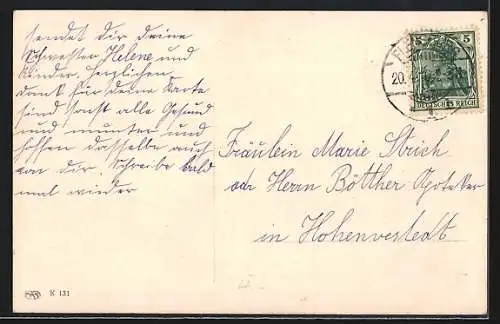 sendet dir deine
Schwester Helene und
Kinder, herzlichen
Dank für deine Karte
sind sonst alle Gesund
und munter und
hoffen dasselbe auch
von dir. Schreibe bald
mal wieder
5
20.
DEUTSCHES REICH
Fräulein Marie Strich
adr Herrn Bötther Apoteker
in Hohenvestedt
K 131